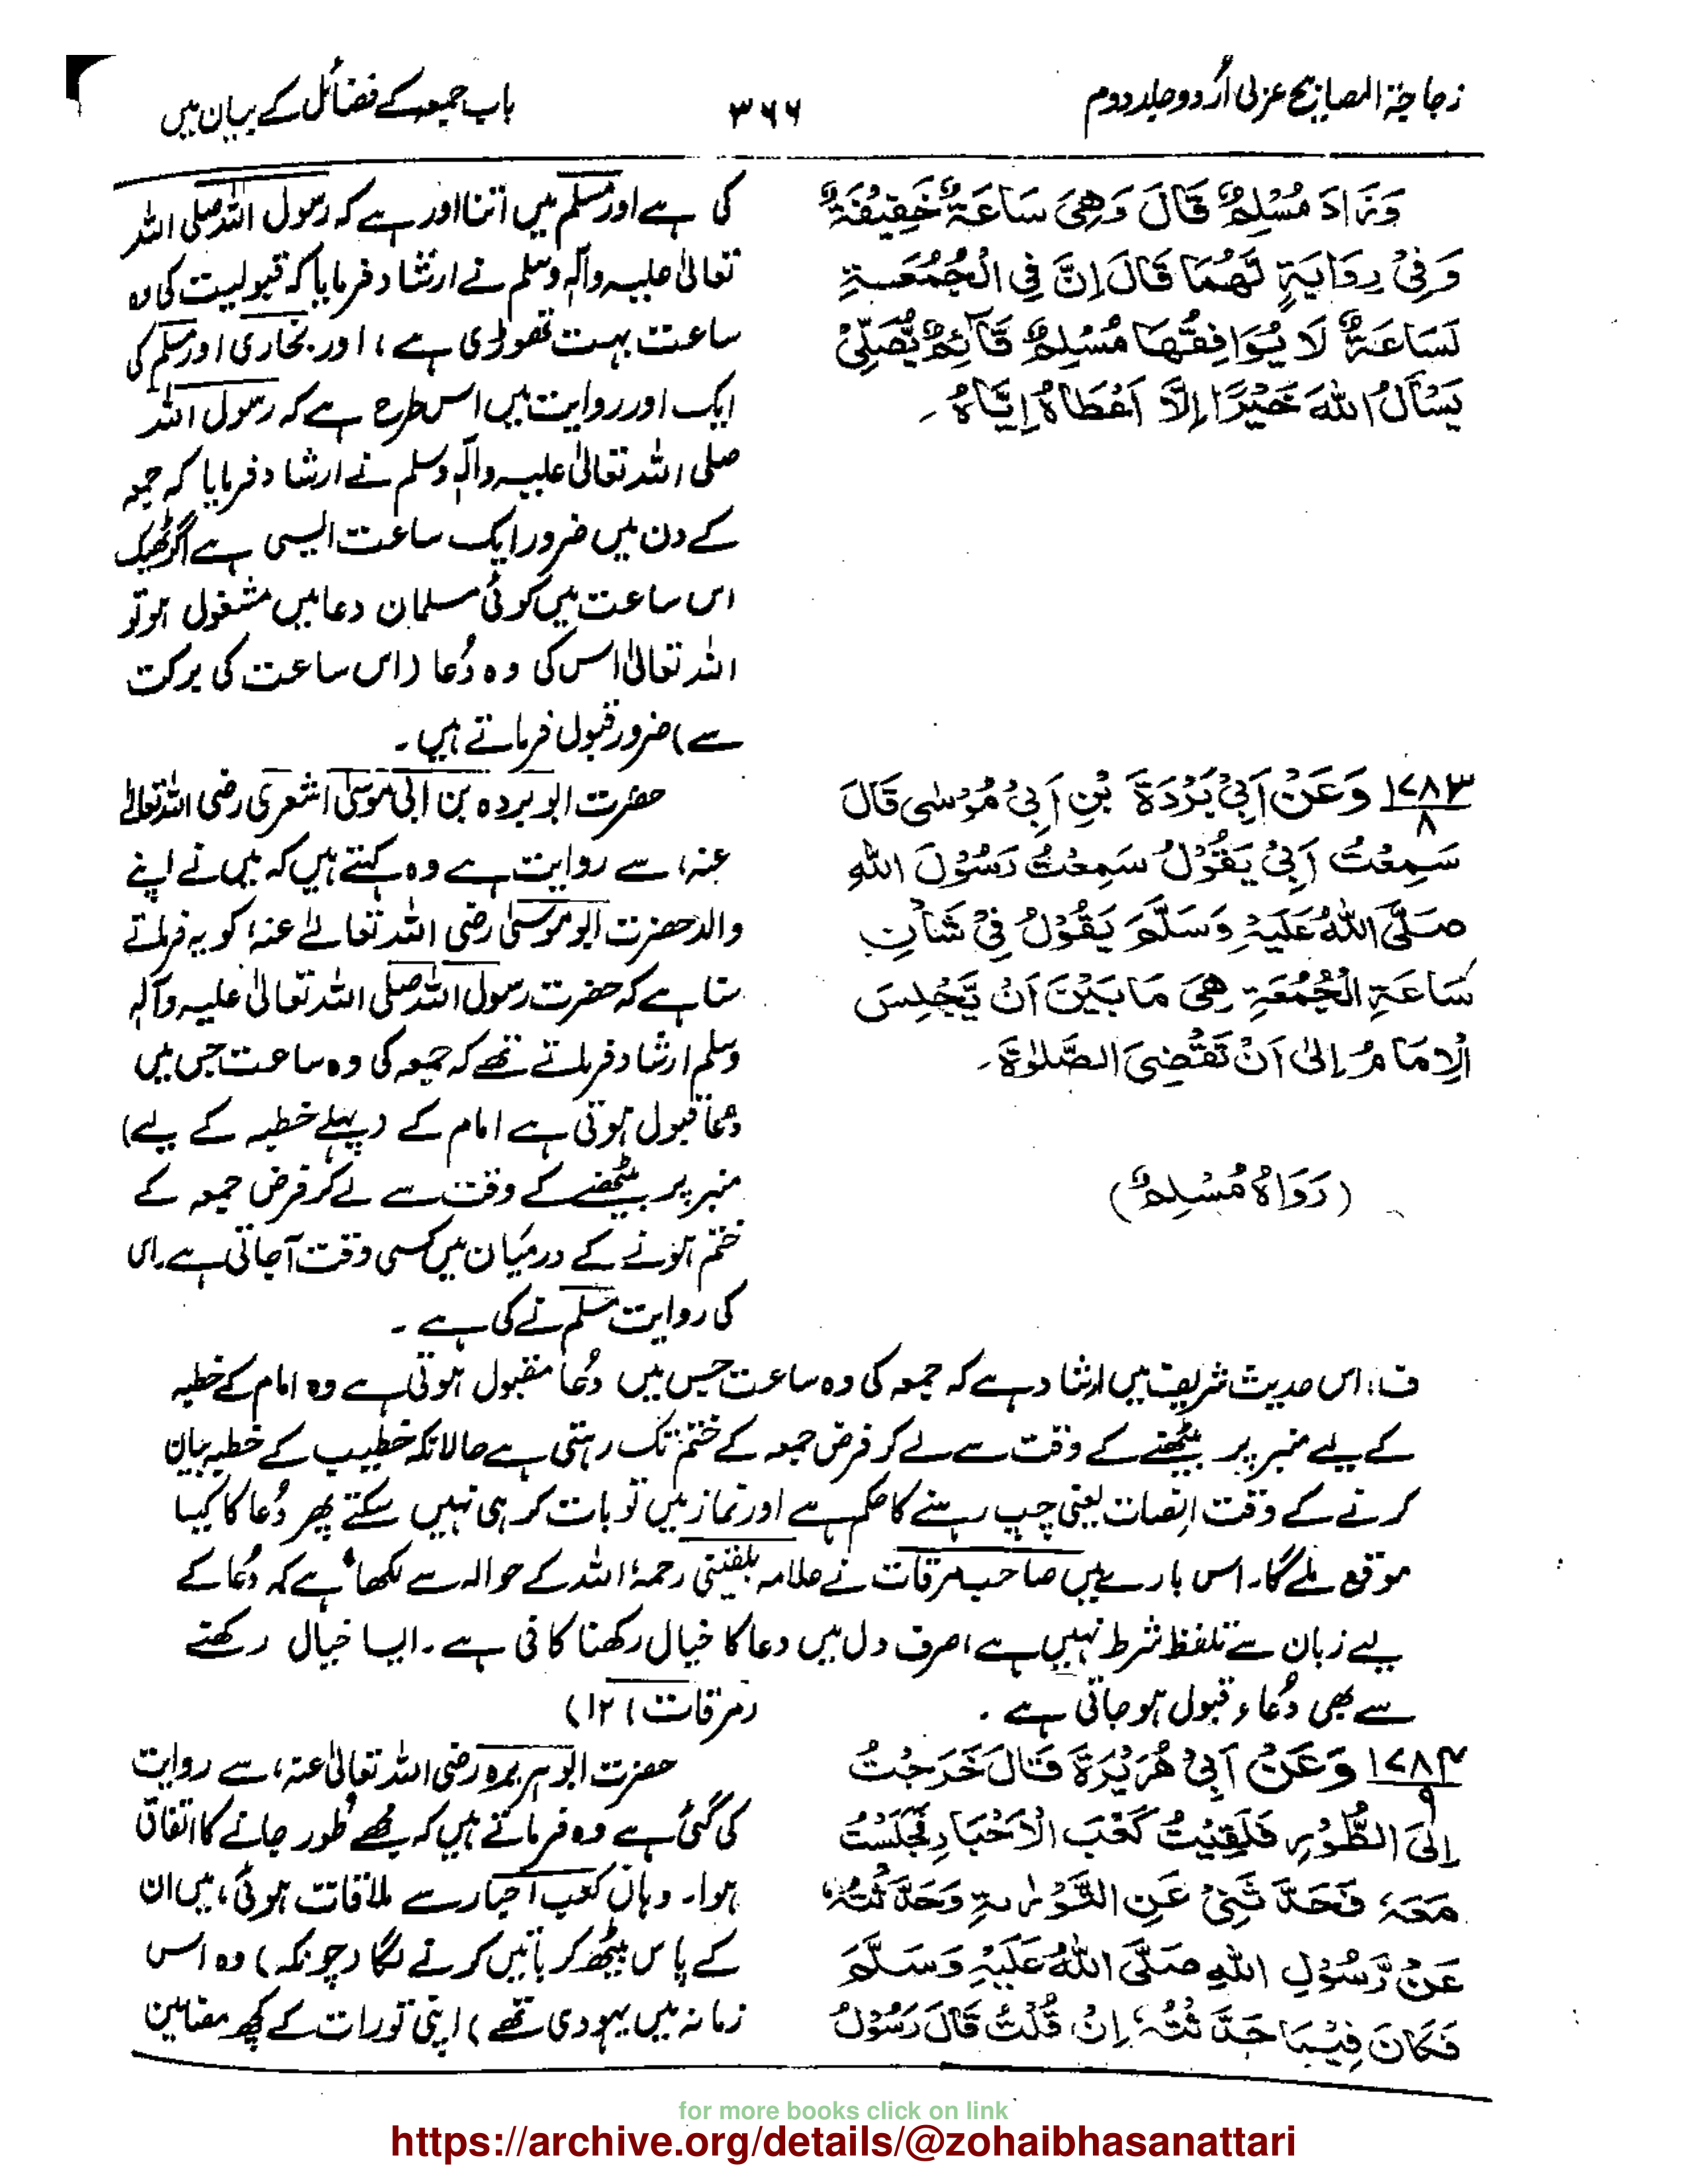 زجاجۃ المصابیح عربی اُردو جلد دوم
۳۶۶
باب جمعہ کے فضائل کے بیان میں
وَزَادَ مُسْلِمٌ قَالَ وَهِيَ سَاعَةٌ خَفِيْفَةٌ
وَفِيْ رِوَايَةٍ لَّهُمَا قَالَ اِنَّ فِي الْجُمُعَةِ
لَسَاعَةٌ لَا يُوَافِقُهَا مُسْلِمٌ قَآئِمٌ يُّصَلِّيْ
يَسْاَلُ اللهَ خَيْرًا اِلَّا اَعْطَاهُ اِيَّاهُ ۔
کی ہے اور مسلم میں اتنا اور ہے کہ رسول اللہ صلی اللہ
تعالیٰ علیہ وآلہ وسلم نے ارشاد فرمایا کہ قبولیت کی وہ
ساعت بہت تھوڑی ہے، اور بخاری اور مسلم کی
ایک اور روایت میں اس طرح ہے کہ رسول اللہ
صلی اللہ تعالیٰ علیہ وآلہ وسلم نے ارشاد فرمایا کہ جمعہ
کے دن میں ضرور ایک ساعت ایسی ہے اگر ٹھیک
اس ساعت میں کوئی مسلمان دعا میں مشغول ہو تو
اللہ تعالیٰ اس کی وہ دُعا (اس ساعت کی برکت
سے) ضرور قبول فرماتے ہیں ۔
۱۷۸۳ وَعَنْ اَبِيْ بَرْدَةَ بْنِ اَبِيْ مُوْسٰى قَالَ
۸
سَمِعْتُ اَبِيْ يَقُوْلُ سَمِعْتُ رَسُوْلَ اللهِ
صَلَّى اللهُ عَلَيْهِ وَسَلَّمَ يَقُوْلُ فِيْ شَاْنِ
سَاعَةِ الْجُمُعَةِ هِيَ مَا بَيْنَ اَنْ يَّجْلِسَ
الْاِمَامُ اِلٰى اَنْ تَقْضِيَ الصَّلٰوةَ ۔
(رَوَاهُ مُسْلِمٌ)
حضرت ابو بردہ بن ابی موسیٰ اشعری رضی اللہ تعالےٰ
عنہٗ سے روایت ہے وہ کہتے ہیں کہ میں نے اپنے
والد حضرت ابو موسیٰ رضی اللہ تعالےٰ عنہٗ کو یہ فرماتے
سنا ہے کہ حضرت رسول اللہ صلی اللہ تعالیٰ علیہ وآلہ
وسلم ارشاد فرماتے تھے کہ جمعہ کی وہ ساعت جس میں
دُعا قبول ہوتی ہے امام کے (پہلے خطبہ کے لیے)
منبر پر بیٹھنے کے وقت سے لے کر فرض جمعہ کے
ختم ہونے کے درمیان میں کسی وقت آجاتی ہے۔ اس
کی روایت مسلم نے کی ہے ۔
ف: اس حدیث شریف میں ارشاد ہے کہ جمعہ کی وہ ساعت جس میں دُعا مقبول ہوتی ہے وہ امام کے خطبہ
کے لیے منبر پر بیٹھنے کے وقت سے لے کر فرض جمعہ کے ختم تک رہتی ہے حالانکہ خطیب کے خطبہ بیان
کرنے کے وقت انصات یعنی چپ رہنے کا حکم ہے اور نماز میں تو بات کر ہی نہیں سکتے پھر دُعا کا کیا
موقع ملے گا۔ اس بارے میں صاحب مرقات نے علامہ بلقینی رحمۃ اللہ کے حوالہ سے لکھا ہے کہ دُعا کے
لیے زبان سے تلفظ شرط نہیں ہے، صرف دل میں دعا کا خیال رکھنا کافی ہے۔ ایسا خیال رکھنے
سے بھی دُعاء قبول ہو جاتی ہے ۔ (مرقات) (۱۲)
۱۷۸۴ وَعَنْ اَبِيْ هُرَيْرَةَ قَالَ خَرَجْتُ
۹
اِلَى الطُّوْرِ فَلَقِيْتُ كَعْبَ الْاَحْبَارِ فَجَلَسْتُ
مَعَهٗ فَحَدَّثَنِيْ عَنِ التَّوْرٰىةِ وَحَدَّثْتُهٗ
عَنْ رَّسُوْلِ اللهِ صَلَّى اللهُ عَلَيْهِ وَسَلَّمَ
فَكَانَ فِيْمَا حَدَّثْتُهٗ اِنْ قُلْتُ قَالَ رَسُوْلُ
حضرت ابو ہریرہ رضی اللہ تعالیٰ عنہٗ سے روایت
کی گئی ہے وہ فرماتے ہیں کہ مجھے طور جانے کا اتفاق
ہوا۔ وہاں کعب احبار سے ملاقات ہوئی، میں ان
کے پاس بیٹھ کر باتیں کرنے لگا (چونکہ) وہ اس
زمانہ میں یہودی تھے) اپنی تورات کے کچھ مضامین
for more books click on link
https://archive.org/details/@zohaibhasanattari